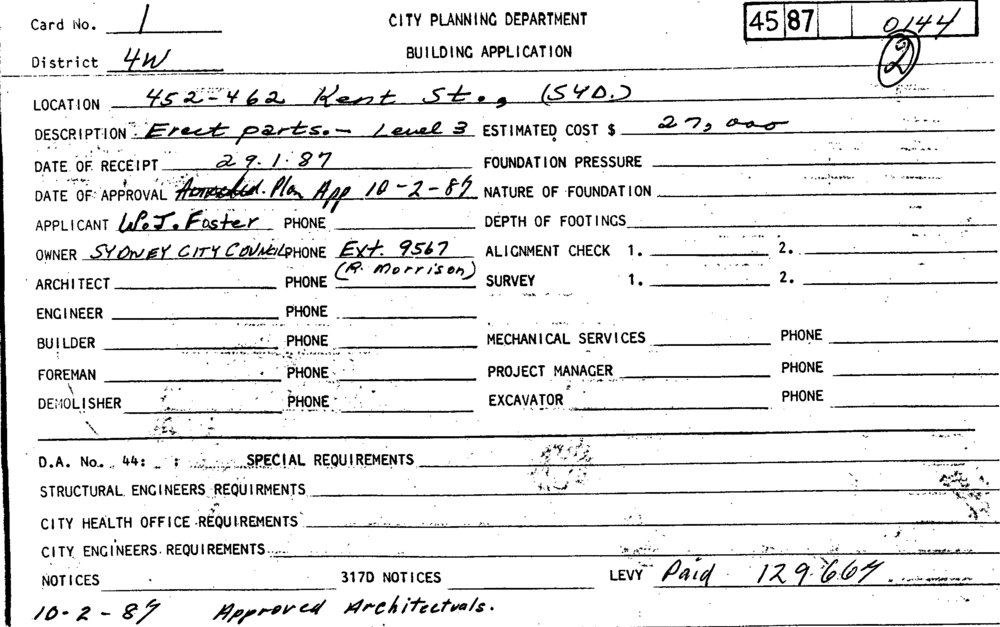 Card No. 1 CITY PLANNING DEPARTMENT 45 87 0144
District 4W BUILDING APPLICATION 2
LOCATION 452-462 Kent St., (SYD.)
DESCRIPTION Erect parts.- Level 3 ESTIMATED COST $ 27,000
DATE OF RECEIPT 29.1.87 FOUNDATION PRESSURE
DATE OF APPROVAL Plan App 10-2-87 NATURE OF FOUNDATION
APPLICANT W.J. Foster PHONE DEPTH OF FOOTINGS
OWNER SYDNEY CITY COUNCIL PHONE Ext. 9567 ALIGNMENT CHECK 1. 2.
ARCHITECT PHONE (R. Morrison) SURVEY 1. 2.
ENGINEER PHONE
BUILDER PHONE MECHANICAL SERVICES PHONE
FOREMAN PHONE PROJECT MANAGER PHONE
DEMOLISHER PHONE EXCAVATOR PHONE
D.A. No. 44: : SPECIAL REQUIREMENTS
STRUCTURAL ENGINEERS REQUIRMENTS
CITY HEALTH OFFICE REQUIREMENTS
CITY ENGINEERS REQUIREMENTS
NOTICES 317D NOTICES LEVY Paid 129667
10-2-87 Approved Architectuals.